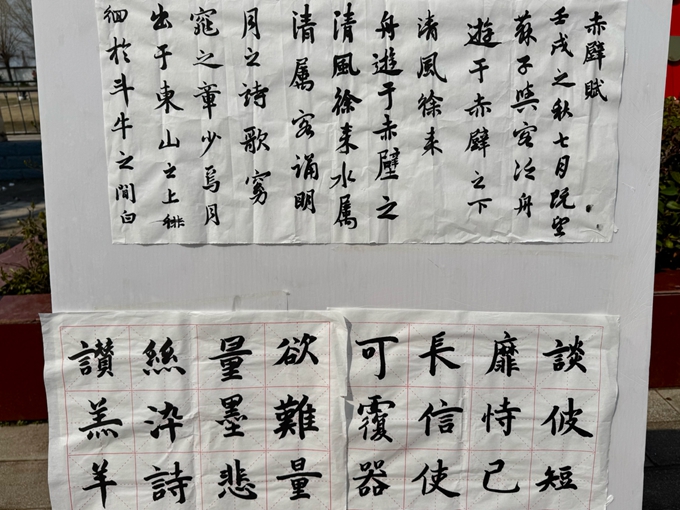 赤壁賦
壬戌之秋七月既望
蘇子與客泛舟
遊于赤壁之下
清風徐来
舟遊于赤壁之
清風徐来水属
清属客誦明
月之詩歌
窕之章少焉月
出于東山之上徘
徊於斗牛之間白
談彼短
靡恃己
長信使
可覆器
欲難量
量墨悲
絲染詩
讚羔羊